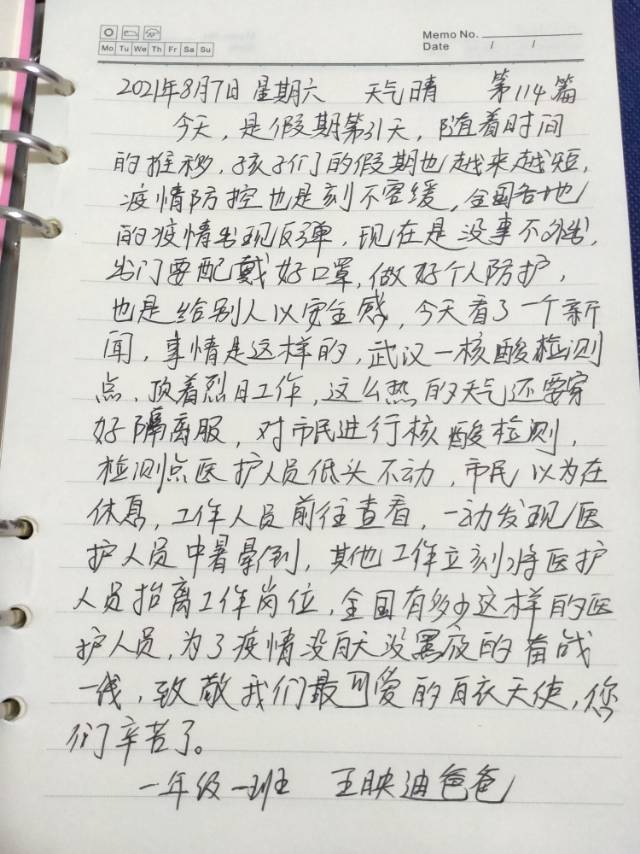 Memo No.
Mo Tu We Th Fr Sa Su
Date / /
2021年8月7日 星期六 天气晴 第114篇
今天,是假期第31天,随着时间
的推移,孩子们的假期也越来越短,
疫情防控也是刻不容缓,全国各地
的疫情出现反弹,现在是没事不外出,
出门要配戴好口罩,做好个人防护,
也是给别人以安全感,今天看了一个新
闻,事情是这样的,武汉一核酸检测
点,顶着烈日工作,这么热的天气还要穿
好隔离服,对市民进行核酸检测,
检测点医护人员低头不动,市民以为在
休息,工作人员前往查看,一动发现医
护人员中暑晕倒,其他工作立刻将医护
人员抬离工作岗位,全国有多少这样的医
护人员,为了疫情没白天没黑夜的奋战
一线,致敬我们最可爱的白衣天使,您
们辛苦了。
一年级一班 王映迪爸爸